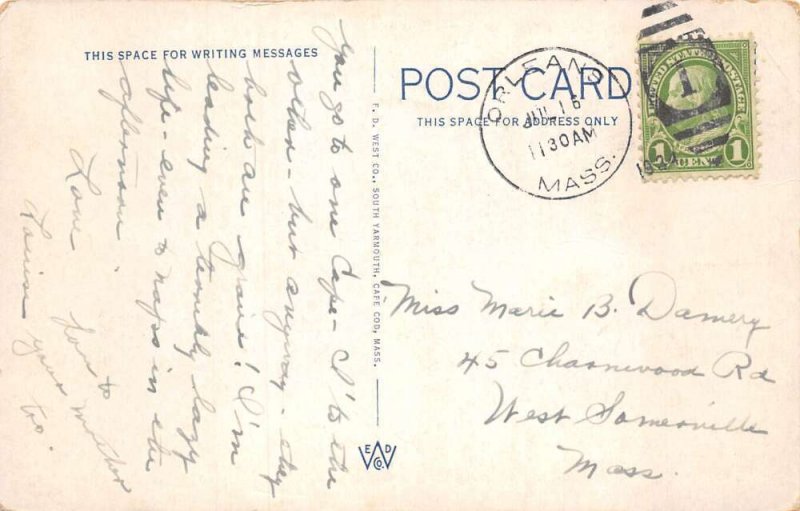 THIS SPACE FOR WRITING MESSAGES
You go to one Cape - I to the
other - but anyway - they
both are grand! I'm
leading a terribly lazy
life - even to naps in the
afternoon.
Love
Love to
your mother
too.
F. D. WEST CO., SOUTH YARMOUTH, CAPE COD, MASS.
E D
W
CO.
POST CARD
THIS SPACE FOR ADDRESS ONLY
ORLEANS
JUL 16
1130AM
MASS.
UNITED STATES POSTAGE
1
1 CENT 1
Miss Marie B. Damery
45 Charnwood Rd
West Somerville
Mass.